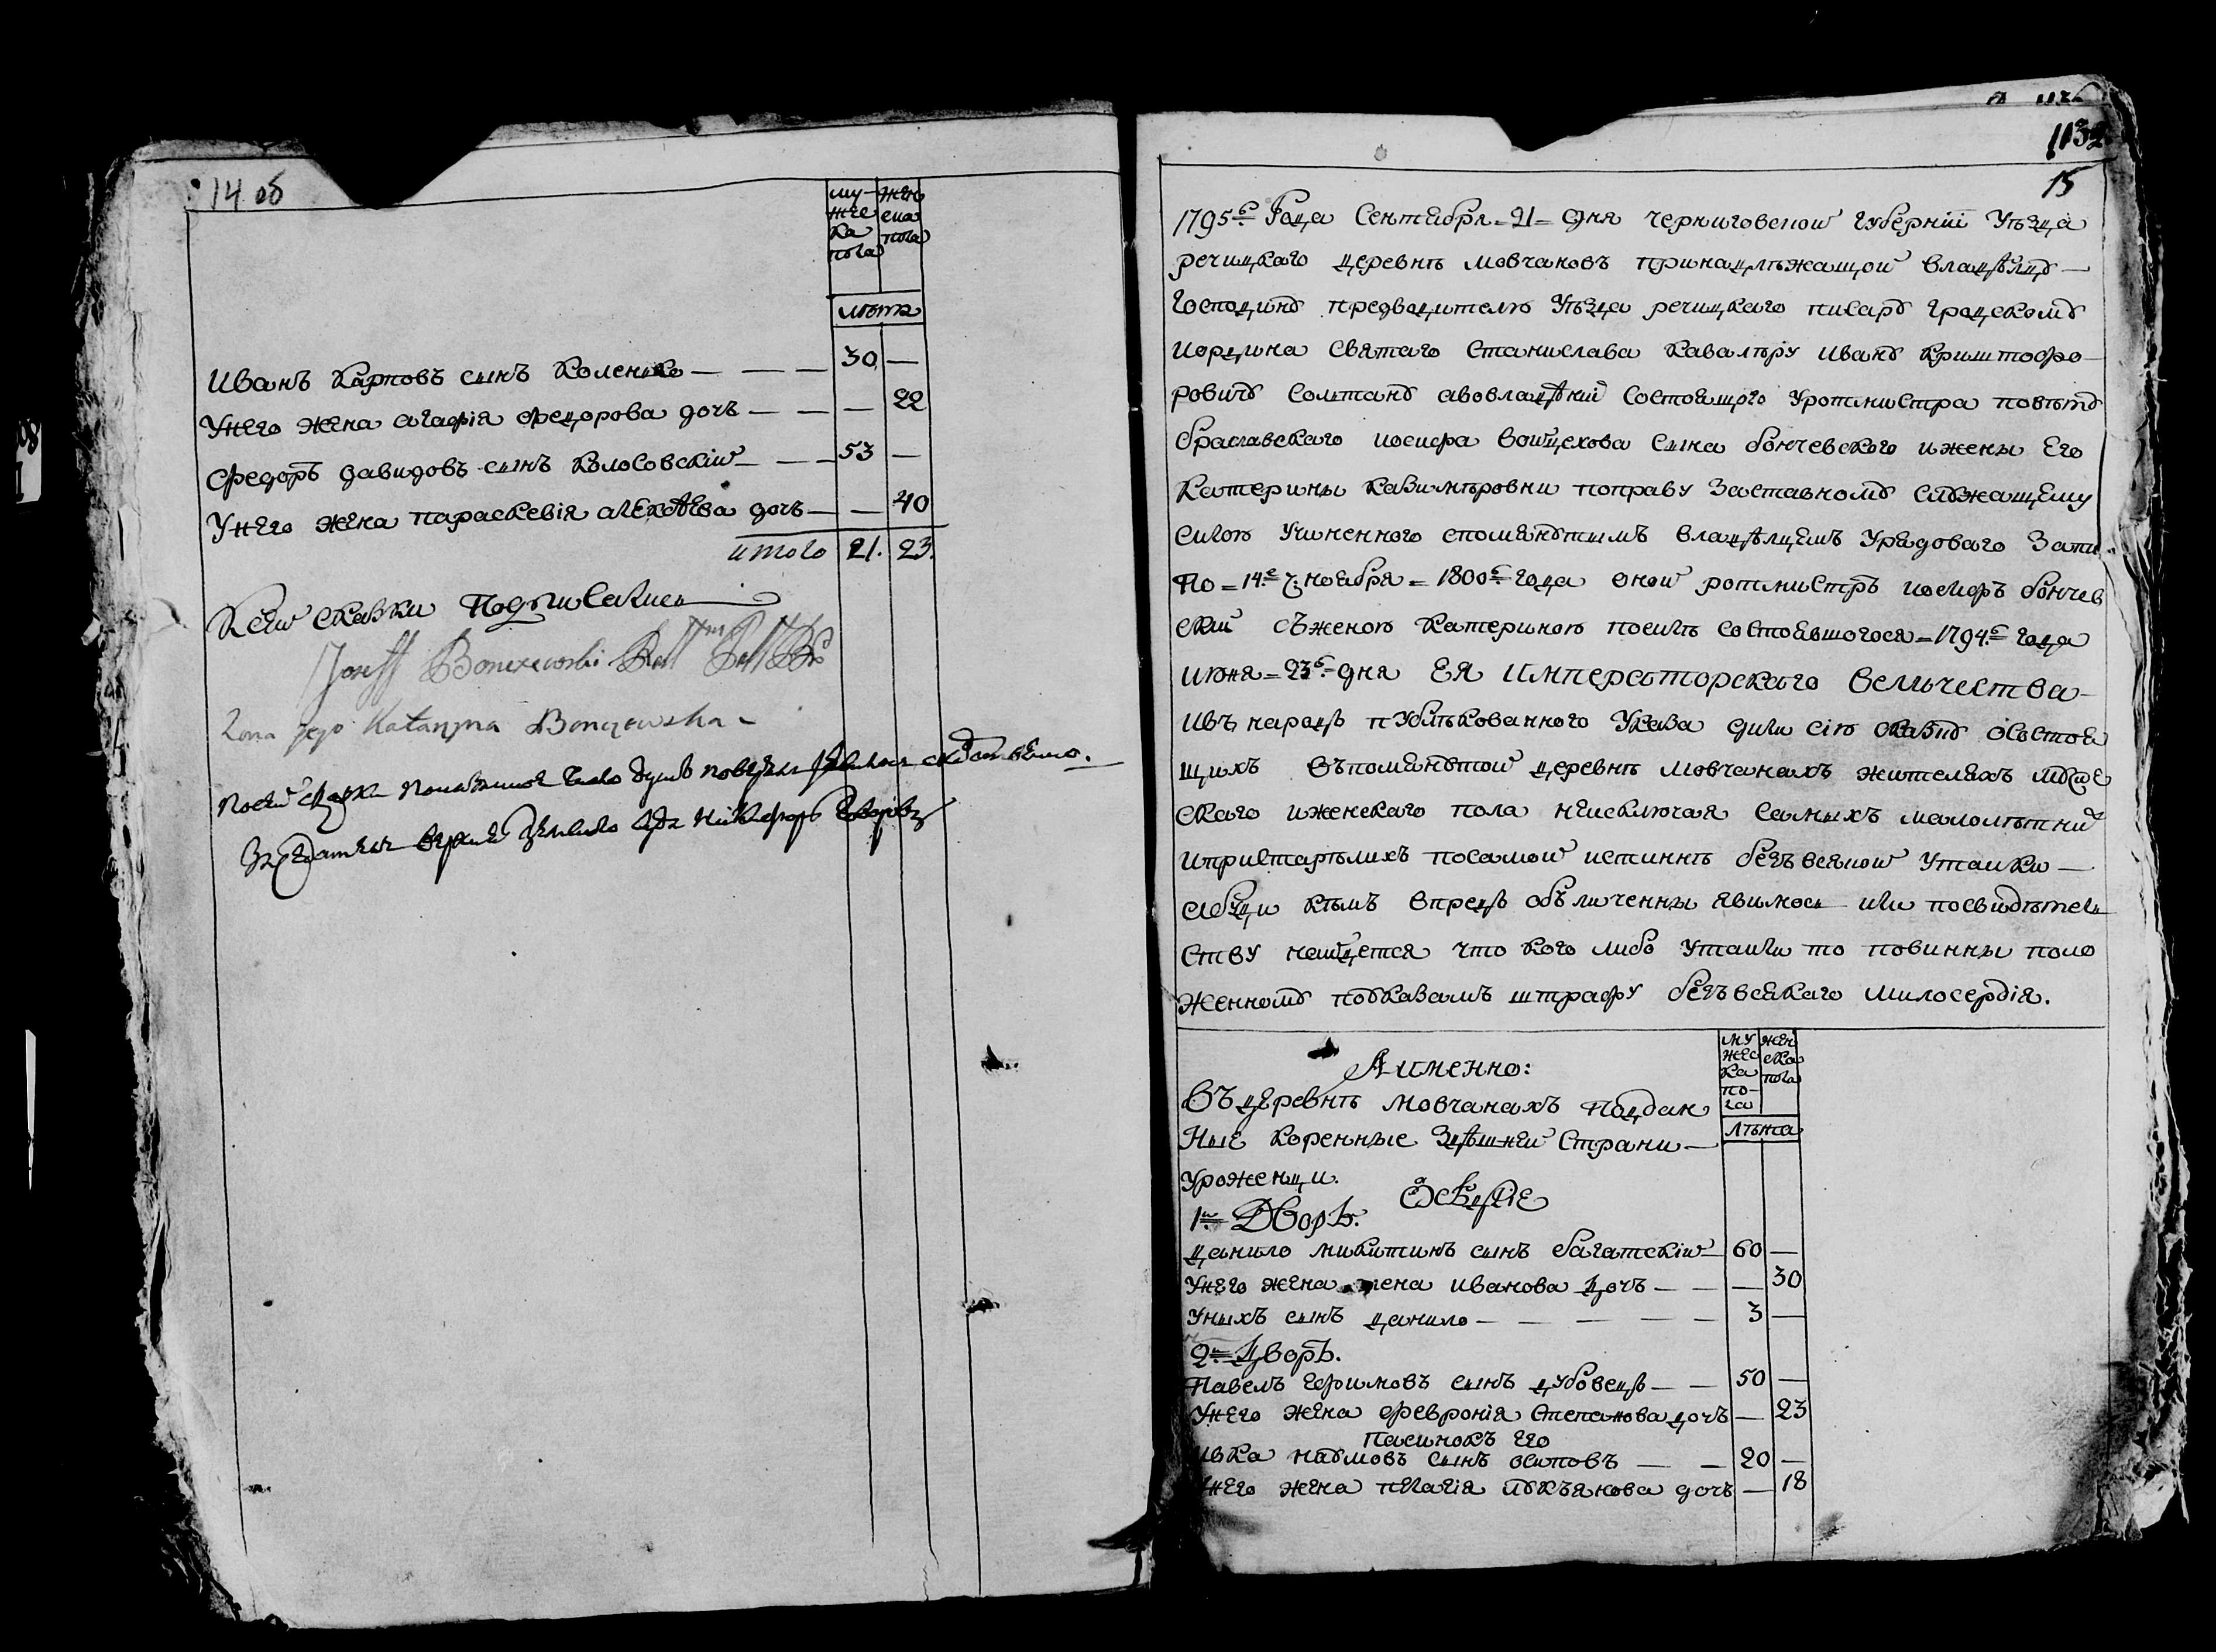 14 об
му-
жес
ка
пола
жен
ска
пола
лѣта
Иванъ Карповъ сынъ Коленько — — — 30 —
Унего жена агафія федорова дочь — — — 22
Федоръ давидовъ сынъ Колосовскій — — — 53 —
Унего жена параскевія алексѣева дочь — — 40
итого 21. 23.
Ксей сказки Подписались
Joseff Bonczewski
Zona jego Katarzyna Bonczewska
Посей
1132
15
1795го Года Сентября = 21 = дня черниговской губерніи Уѣзда
речицкаго деревнѣ мовчановъ принадлѣжащой владѣлцу —
Господину предводителю Уѣзда речицкаго писару градскому
иордина Святаго Станислава Кавалѣру ивану криштофо
ровичу солтану авовладѣніи Состоящого Уротмистра повѣту
браславского иосифа войцехова Сына бончевского ижены Его
Катерины казимѣровни поправу Заставному служащему
Силою Учиненного спомянутымъ владѣлцемъ Урядоваго Запи
По = 14е ноября = 1800го года оной ротмистръ иосифъ бончев
ский съженою Катериною посилѣ состоявшогося = 1794го года
июня = 23го дня ЕЯ ИМПЕРАТОРСКАГО ВЕЛИЧЕСТВА —
ивъ народѣ пУблѣкованного Указа дали сію сказку осостоя
щихъ въпомянутой деревнѣ мовчанахъ жителяхъ муже
скаго иженскаго пола неисключая самыхъ малолѣтних
ипристарѣлихъ посамой истиннѣ безъвсякой Утайки —
абуди къмъ впредѣ обличенны явимось или посвидѣтель
ству найдется что кого либо утаили то повинны поло
женному поуказамъ штрафу безъвсякаго милосердія.
Аименно:
му
жес
ка
по-
ла
жен
ска
пола
лѣта
Въ деревнѣ мовчанахъ Поддан
ные коренные Здѣшней Страни —
Уроженци.
1й Дворъ.
данило микитинъ сынъ багатскій — 60 —
Унего жена иванова дочь — — — 30
Уныхъ сынъ данило — — — — — 3 —
2й Дворъ.
Павелъ ефимовъ сынъ дубовецъ — — 50 —
Унего жена февронія Степанова дочь — 23
Пасинокъ его
ивка наумовъ сынъ осиповъ — — 20 —
Унего жена пелагія лукъянова дочь — 18